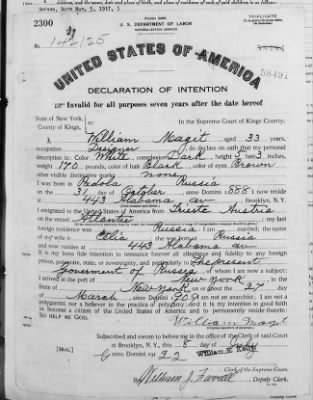 TRIPLICATE
2300
U. S. DEPARTMENT OF LABOR
NATURALIZATION SERVICE
No. 142125
UNITED STATES OF AMERICA
58491
DECLARATION OF INTENTION
Invalid for all purposes seven years after the date hereof
State of New York,
County of Kings,
In the Supreme Court of Kings County.
I, William Magit, aged 33 years,
occupation Designer, do declare on oath that my personal
description is: Color White, complexion Dark, height 5 feet 3 inches,
weight 170 pounds, color of hair Black, color of eyes Brown
other visible distinctive marks none
I was born in Podola Russia
on the 31 day of October, anno Domini 1888 I now reside
at 443 Alabama av Brooklyn, N.Y.
I emigrated to the United States of America from Trieste Austria
on the vessel Atlanta my last
foreign residence was Russia I am married; the name
of my wife is Celia she was born Russia
and now resides at 443 Alabama av
It is my bona fide intention to renounce forever all allegiance and fidelity to any foreign
prince, potentate, state, or sovereignty, and particularly to The present
Government of Russia, of whom I am now a subject;
I arrived at the port of New York, in the
State of New York on or about the 27 day
of March, anno Domini 1909 I am not an anarchist; I am not a
polygamist nor a believer in the practice of polygamy; and it is my intention in good faith
to become a citizen of the United States of America and to permanently reside therein:
SO HELP ME GOD.
William Magit
Subscribed and sworn to before me in the office of the Clerk of said Court
[SEAL] at Brooklyn, N.Y., this 8 day of July
anno Domini 1922 William E. Kelly
Clerk of the Supreme Court.
By William J. Deputy Clerk.